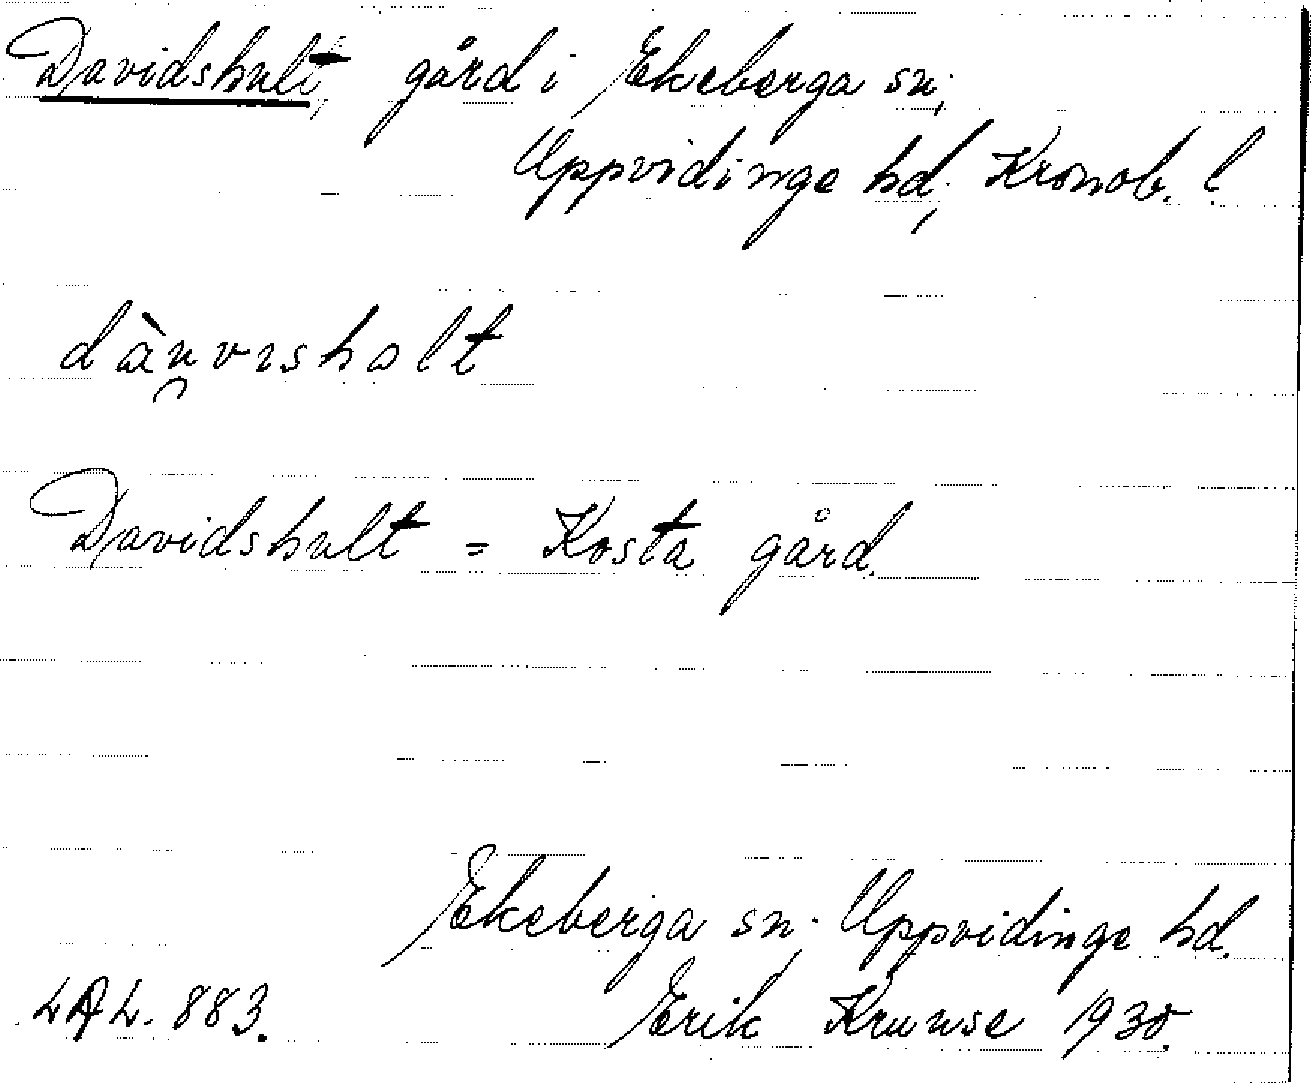 Davidshult, gård i Ekeberga sn,
Uppvidinge hd, Kronob. l.
dàu̯vısholt
Davidshult = Kosta gård.
Ekeberga sn. Uppvidinge hd.
LAL. 883. Erik Kruuse 1930.